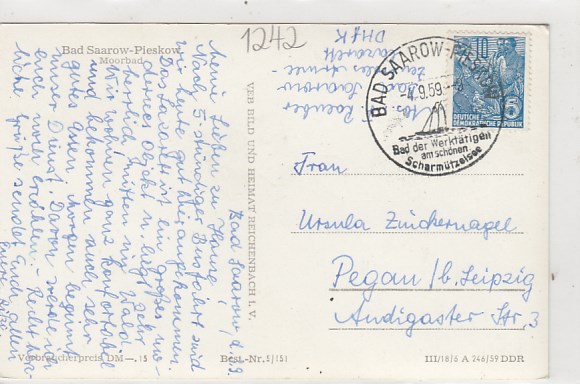 Bad Saarow-Pieskow
Moorbad
1242
Bad Saarow, d. 3.9.59
Meine Lieben zu Hause,
Nach 5 stündiger Busfahrt sind
wir hier gut angekommen.
Das Lazarett ist ein großes mo-
dernes Objekt u. liegt sehr
herrlich mitten im Wald.
Wir wohnen ganz komfortabel
und bekommen auch sehr
gutes Essen. Morgen beginnt
unser Dienst. Davon werde ich
euch noch erzählen. - Recht herz-
liche Grüße sendet Euch allen
Eure
Verbraucherpreis DM —,15
VEB BILD UND HEIMAT REICHENBACH i. V.
Best.-Nr. 5/151
Abs.
Saarow
Lazarett
DHfK
BAD SAAROW-PIESKOW
-4.9.59
Bad der Werktätigen
am schönen
Scharmützelsee
10
5
DEUTSCHE
DEMOKRATISCHE REPUBLIK
Frau
Ursula Zuckernagel
Pegau / b. Leipzig
Audigaster Str. 3
III/18/6 A 246/59 DDR